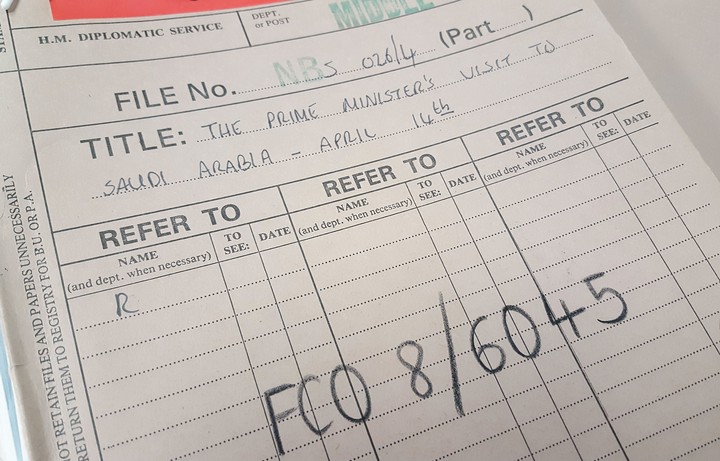 H.M. DIPLOMATIC SERVICE
DEPT.
or POST
MIDDLE
FILE No. NBS 026/4 (Part )
TITLE: THE PRIME MINISTER'S VISIT TO
SAUDI ARABIA - APRIL 14th
REFER TO REFER TO REFER TO
NAME
(and dept. when necessary)
TO
SEE:
DATE
NAME
(and dept. when necessary)
TO
SEE:
DATE
NAME
(and dept. when necessary)
TO
SEE:
DATE
R
FCO 8/6045
NOT RETAIN FILES AND PAPERS UNNECESSARILY
RETURN THEM TO REGISTRY FOR B.U. OR P.A.